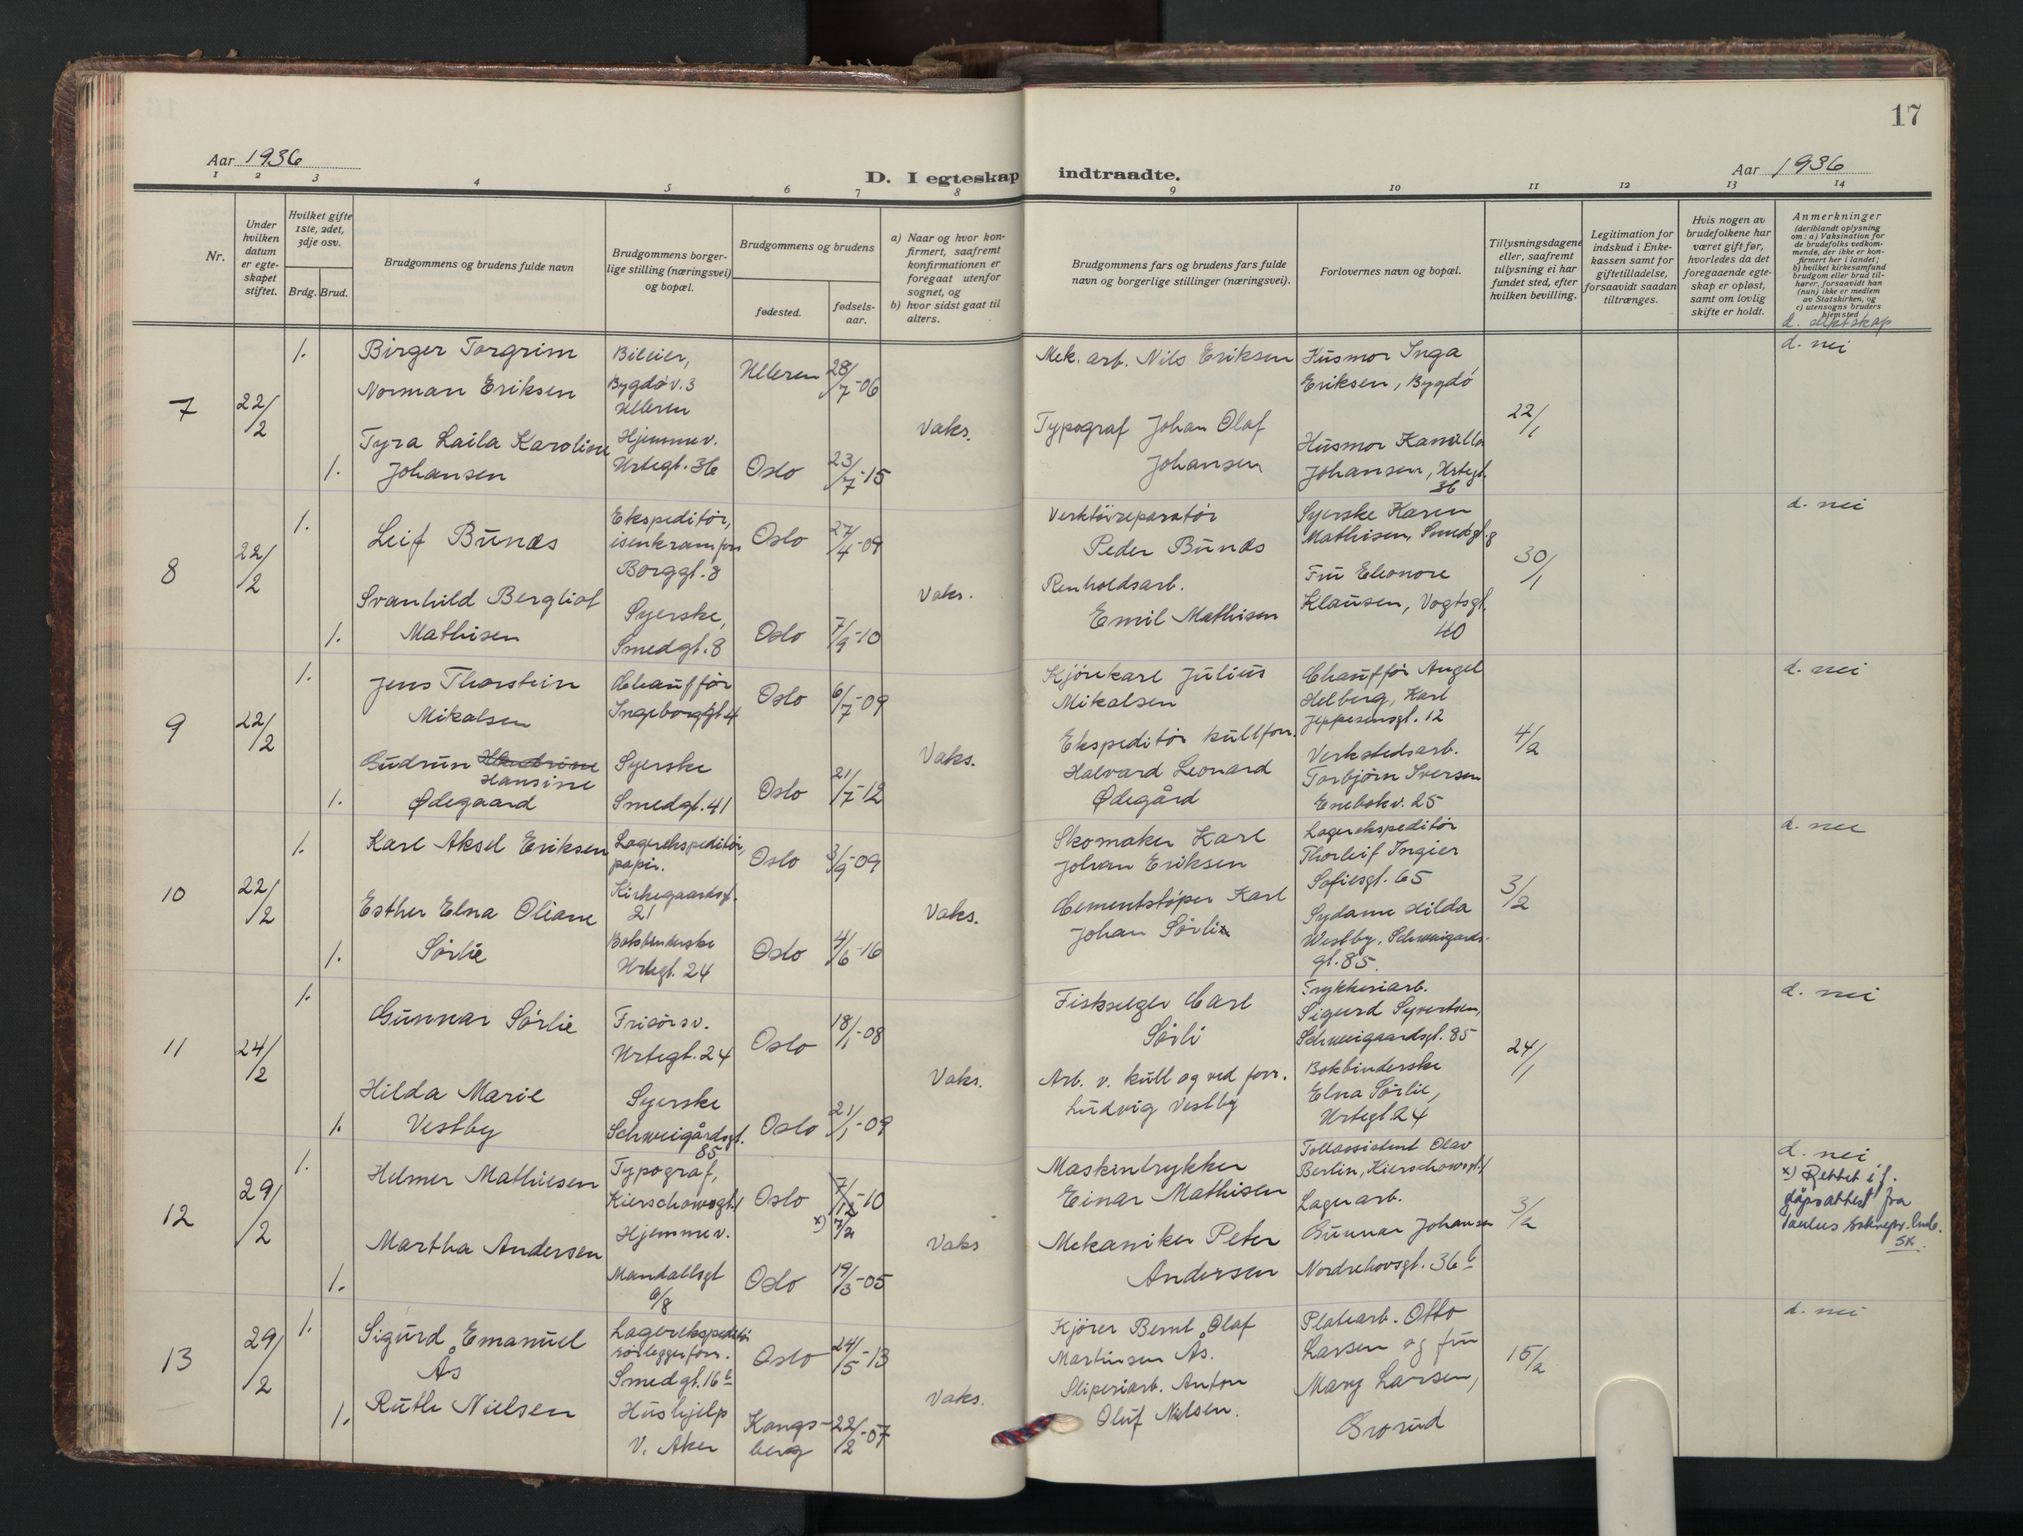 17
Aar 1936
D. I egteskap indtraadte.
Aar 1936
1 2 3 4 5 6 7 8 9 10 11 12 13 14
Nr.
Under hvilken datum er egteskapet stiftet.
Hvilket gifte 1ste, 2det, 3dje osv.
Brdg. Brud.
Brudgommens og brudens fulde navn
Brudgommens borgerlige stilling (næringsvei) og bopæl.
Brudgommens og brudens
fødested.
fødselsaar.
a) Naar og hvor konfirmert, saafremt konfirmationen er foregaat utenfor sognet, og
b) hvor sidst gaat til alters.
Brudgommens fars og brudens fars fulde navn og borgerlige stillinger (næringsvei).
Forlovernes navn og bopæl.
Tillysningsdagene eller, saafremt tillysning ei har fundet sted, efter hvilken bevilling.
Legitimation for indskud i Enkekassen samt for giftetilladelse, forsaavidt saadan tiltrænges.
Hvis nogen av brudefolkene har været gift før, hvorledes da det foregaaende egteskap er opløst, samt om lovlig skifte er holdt.
Anmerkninger
(deriblandt oplysning om: a) Vaksination for de brudefolks vedkommende, der ikke er konfirmert her i landet; b) hvilket kirkesamfund brudgom eller brud tilhører, forsaavidt han (hun) ikke er medlem av Statskirken, og c) utensogns bruders hjemsted
d. slektskap
7
22/2
1.
Birger Torgrim
Norman Eriksen
Bileier,
Bygdøv. 3
Ulleren
Ulleren
28/7-06
1.
Tyra Laila Karoline
Johansen
Hjemmev.
Urtegt. 36
Oslo
23/7-15
Vaks.
Mek. arb. Nils Eriksen
Typograf Johan Olaf
Johansen
Husmor Inga
Eriksen, Bygdó
Husmor Kamilla
Johansen, Urtegt.
36
22/1
d. nei
8
22/2
1.
Leif Bunæs
Ekspeditør,
isenkramforr
Borggt. 8
Oslo
27/4-09
1.
Svanhild Bergliot
Mathisen
Syerske,
Smedgt. 8
Oslo
7/9-10
Vaks.
Verktöireparatør
Peder Bunæs
Renholdsarb.
Emil Mathisen
Syerske Karen
Mathisen, Smedgt. 8
Fru Eleonore
Klausen, Vogtsgt.
40
30/1
d. nei
9
22/2
1.
Jens Thorstein
Mikalsen
Chauffør
Ingeborggt. 4
Oslo
6/7-09
1.
Gudrun
Hansine
Ødegaard
Syerske
Smedgt. 41
Oslo
21/7-12
Vaks.
Kjörekarl Julius
Mikalsen
Ekspeditør kullforr.
Halvard Leonard
Ødegård
Chauffør Angel
Helberg, Karl
Jeppesensgt. 12
Verkstedsarb.
Torbjørn Iversen
Enebakv. 25
4/2
d. nei
10
22/2
1.
Karl Aksel Eriksen
Lagerekspeditør,
papir.
Kirkegaardsgt.
21
Oslo
3/9-09
1.
Esther Elna Oliane
Sørlie
Bokbinderske
Urtegt. 24
Oslo
4/6-16
Vaks.
Skomaker Karl
Johan Eriksen
Cementstøper Karl
Johan Sørli
Lagerekspeditör
Thorleif Ingier
Sofiesgt. 65
Sydame Hilda
Westby, Schweigaards-
gt. 85.
3/2
d. nei
11
24/2
1.
Gunnar Sørlie
Frisørsv.
Urtegt. 24
Oslo
18/1-08
1.
Hilda Marie
Vestby
Syerske
Schweigårdsgt.
85
Oslo
21/1-09
Vaks.
Fiskselger Carl
Sørli
Arb. v. kull og ved forr.
Ludvig Vestby
Trykkeriarb.
Sigurd Syvertsen,
Schweigaardsgt. 85
Bokbinderske
Elna Sørlie,
Urtegt. 24
24/1
d. nei
12
29/2
1.
Helmer Mathiesen
Typograf,
Kierschowsgt. 1
Oslo
7/12-10
x) 7/2
1.
Martha Andersen
Hjemmev.
Mandallsgt
6/8
Oslo
19/3-05
Vaks
Maskintrykker
Einar Mathisen
Mekaniker Peter
Andersen
Tollassistent Olav
Berlin, Kierschowsgt. 1
Lagerarb.
Gunnar Johansen
Nordrehovsgt. 36 b
3/2
d. nei
x) Rettet i f.
dåpsattest fra
Paulus
SK.
13
29/2
1.
Sigurd Emanuel
Ås
Lagerekspeditör
rørleggerforr.
Smedgt. 16 b
Oslo
24/5-13
1.
Ruth Nielsen
Hushjelp
V. Aker
Kongs-
berg
22/2-07
Vaks.
Kjører Bernt Olaf
Martinsen Ås.
Sliperiarb. Anton
Oluf Nielsen.
Platearb. Otto
Larsen og fru
Mary Larsen,
Grorud
15/2
d. nei